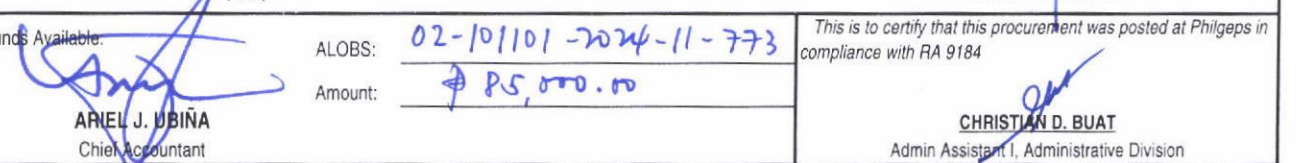 unds Available:
ALOBS: 02-101101-2024-11-773
Amount: ₱ 85,000.00
ARIEL J. UBIÑA
Chief Accountant
This is to certify that this procurement was posted at Philgeps in
compliance with RA 9184
CHRISTIAN D. BUAT
Admin Assistant I, Administrative Division